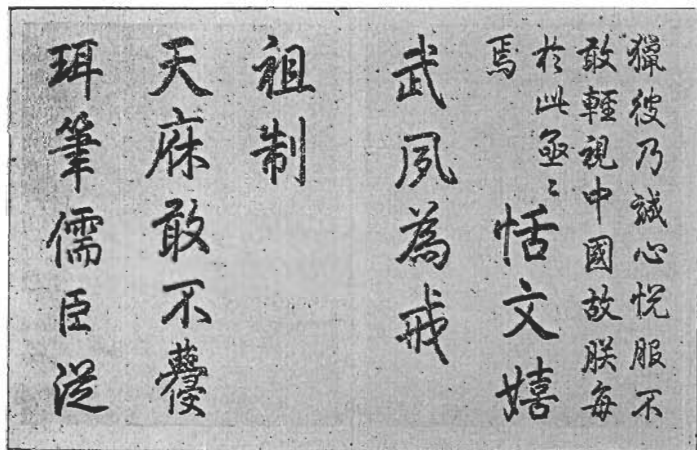 獵彼乃誠心悅服不
敢輕視中國故朕每
於此亟〻
焉
恬文嬉
武夙為戒
祖制
天庥敢不蘉
珥筆儒臣從